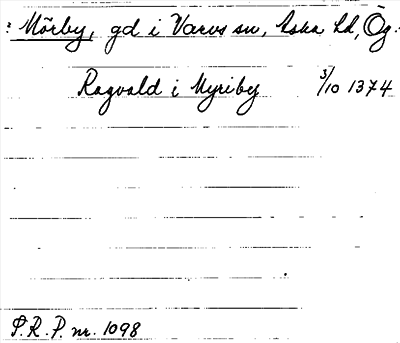 : Mörby, gd i Varvs sn, Aska hd, Ög.
Ragvald i Myriby 3/10 1374
P.R.P. nr. 1098